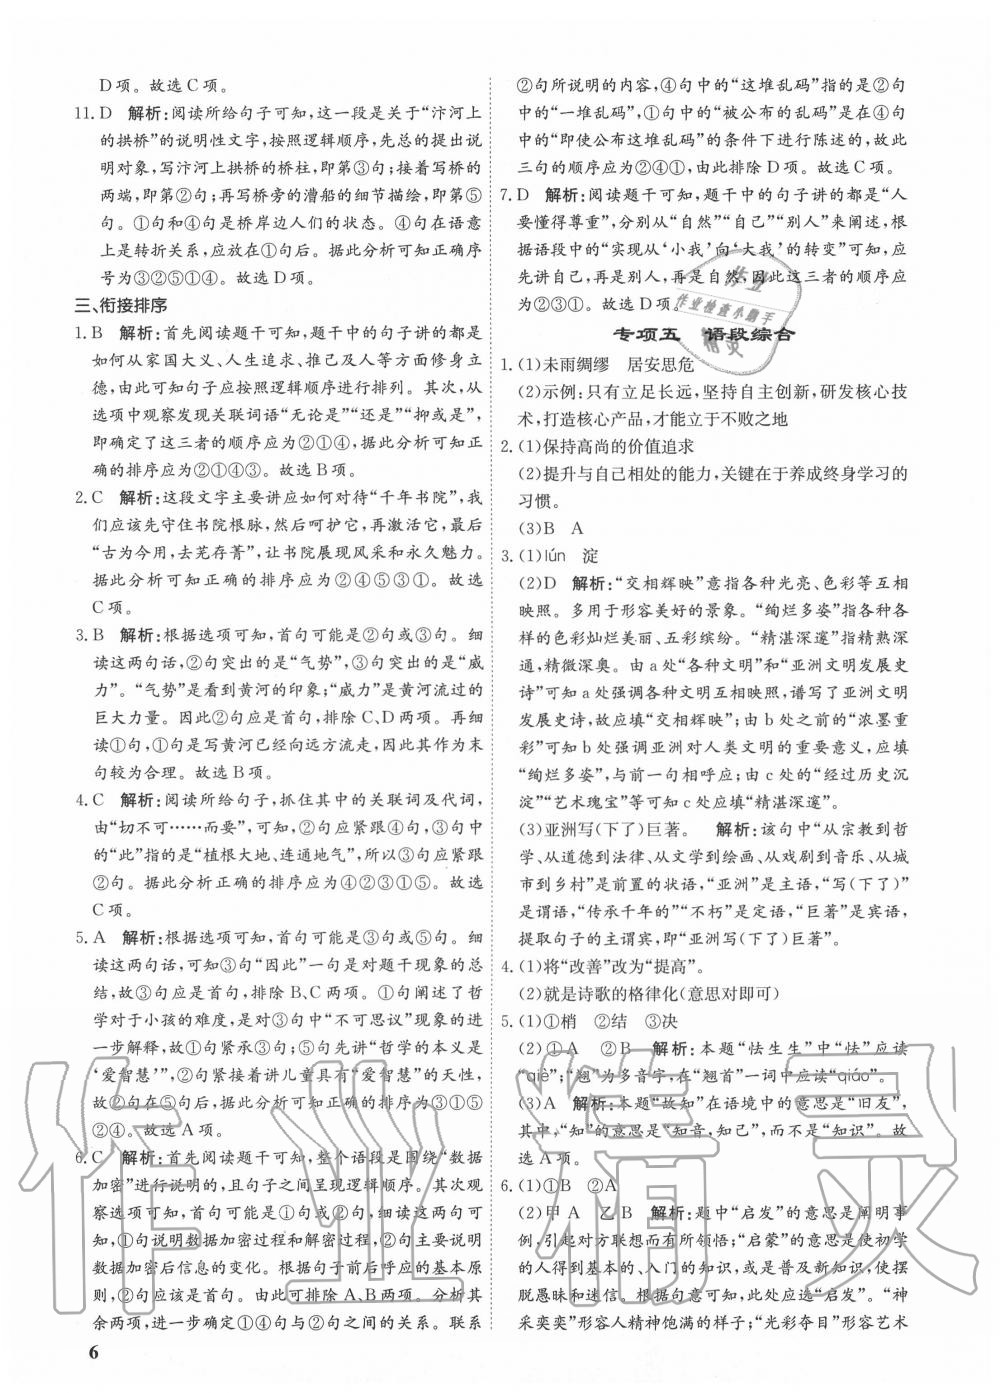 D项。故选C项。
11. D　解析:阅读所给句子可知,这一段是关于“汴河上
的拱桥”的说明性文字,按照逻辑顺序,先总的提出说
明对象,写汴河上拱桥的桥柱,即第③句;接着写桥的
两端,即第②句;再写桥旁的漕船的细节描绘,即第⑤
句。①句和④句是桥岸边人们的状态。④句在语意
上是转折关系,应放在①句后。据此分析可知正确序
号为③②⑤①④。故选D项。
三、衔接排序
1. B　解析:首先阅读题干可知,题干中的句子讲的都是
如何从家国大义、人生追求、推己及人等方面修身立
德,由此可知句子应按照逻辑顺序进行排列。其次,从
选项中观察发现关联词语“无论是”“还是”“抑或是”,
即确定了这三者的顺序应为②①④,据此分析可知正
确的排序应为②①④③。故选B项。
2. C　解析:这段文字主要讲应如何对待“千年书院”,我
们应该先守住书院根脉,然后呵护它,再激活它,最后
“古为今用,去芜存菁”,让书院展现风采和永久魅力。
据此分析可知正确的排序应为②④⑤③①。故选
C项。
3. B　解析:根据选项可知,首句可能是②句或③句。细
读这两句话,②句突出的是“气势”,③句突出的是“威
力”。“气势”是看到黄河的印象;“威力”是黄河流过的
巨大力量。因此②句应是首句,排除C、D两项。再细
读①句,①句是写黄河已经向远方流走,因此其作为末
句较为合理。故选B项。
4. C　解析:阅读所给句子,抓住其中的关联词及代词,
由“切不可……而要”,可知,②句应紧跟④句;③句中
的“此”指的是“植根大地、连通地气”,所以③句应紧跟
②句。据此分析正确的排序应为④②③①⑤。故选
C项。
5. A　解析:根据选项可知,首句可能是③句或⑤句。细
读这两句话,可知③句“因此”一句是对题干现象的总
结,故③句应是首句,排除B、C两项。①句阐述了哲
学对于小孩的难度,是对③句中“不可思议”现象的进
一步解释,故①句紧承③句;⑤句先讲“哲学的本义是
‘爱智慧’”,②句紧接着讲儿童具有“爱智慧”的天性,
故②句在⑤句后,据此分析可知正确的排序为③①⑤
②④。故选A项。
6. C　解析:首先阅读题干可知,整个语段是围绕“数据
加密”进行说明的,且句子之间呈现逻辑顺序。其次观
察选项可知,首句可能是①句或②句,细读这两句可
知,①句说明数据加密过程和解密过程,②句主要说明
数据加密后信息的变化。根据句子前后呼应的基本原
则,②句应该是首句。由此可排除A、B两项。分析其
余两项,进一步确定①④句与②句之间的关系。联系
②句所说明的内容,④句中的“这堆乱码”指的是②句
中的“一堆乱码”,①句中的“被公布的乱码”是在④句
中的“即使公布这堆乱码”的条件下进行陈述的,故此
三句的顺序应为②④①,由此排除D项。故选C项。
7. D　解析:阅读题干可知,题干中的句子讲的都是“人
要懂得尊重”,分别从“自然”“自己”“别人”来阐述,根
据语段中的“实现从‘小我’向‘大我’的转变”可知,应
先讲自己,再是别人,再是自然,因此这三者的顺序应
为②③①。故选D项。
专项五　语段综合
1. (1)未雨绸缪　居安思危
(2)示例:只有立足长远,坚持自主创新,研发核心技
术,打造核心产品,才能立于不败之地
2. (1)保持高尚的价值追求
(2)提升与自己相处的能力,关键在于养成终身学习的
习惯。
(3)B　A
3. (1)lún　淀
(2)D　解析:“交相辉映”意指各种光亮、色彩等互相
映照。多用于形容美好的景象。“绚烂多姿”指各种各
样的色彩灿烂美丽、五彩缤纷。“精湛深邃”指精熟深
通,精微深奥。由a处“各种文明”和“亚洲文明发展史
诗”可知a处强调各种文明互相映照,谱写了亚洲文明
发展史诗,故应填“交相辉映”;由b处之前的“浓墨重
彩”可知b处强调亚洲对人类文明的重要意义,应填
“绚烂多姿”,与前一句相呼应;由c处的“经过历史沉
淀”“艺术瑰宝”等可知c处应填“精湛深邃”。
(3)亚洲写(下了)巨著。　解析:该句中“从宗教到哲
学、从道德到法律、从文学到绘画、从戏剧到音乐、从城
市到乡村”是前置的状语,“亚洲”是主语,“写(下了)”
是谓语,“传承千年的”“不朽”是定语,“巨著”是宾语,
提取句子的主谓宾,即“亚洲写(下了)巨著”。
4. (1)将“改善”改为“提高”。
(2)就是诗歌的格律化(意思对即可)
5. (1)①梢　②结　③决
(2)①A　②B　解析:本题“怯生生”中“怯”应读
“qiè”;“翘”为多音字,在“翘首”一词中应读“qiáo”。
(3)A　解析:本题“故知”在语境中的意思是“旧友”,
其中,“知”的意思是“知音,知己”,而不是“知识”。故
选A项。
6. (1)①B　②A
(2)甲A　乙B　解析:题中“启发”的意思是阐明事
例,引起对方联想而有所领悟;“启蒙”的意思是使初学
的人得到基本的、入门的知识,或是普及新知识,使摆
脱愚昧和迷信。根据句意可知,此处应选“启发”。“神
采奕奕”形容人精神饱满的样子;“光彩夺目”形容艺术
6
作业
作业检查小帮手
精灵
作业精灵